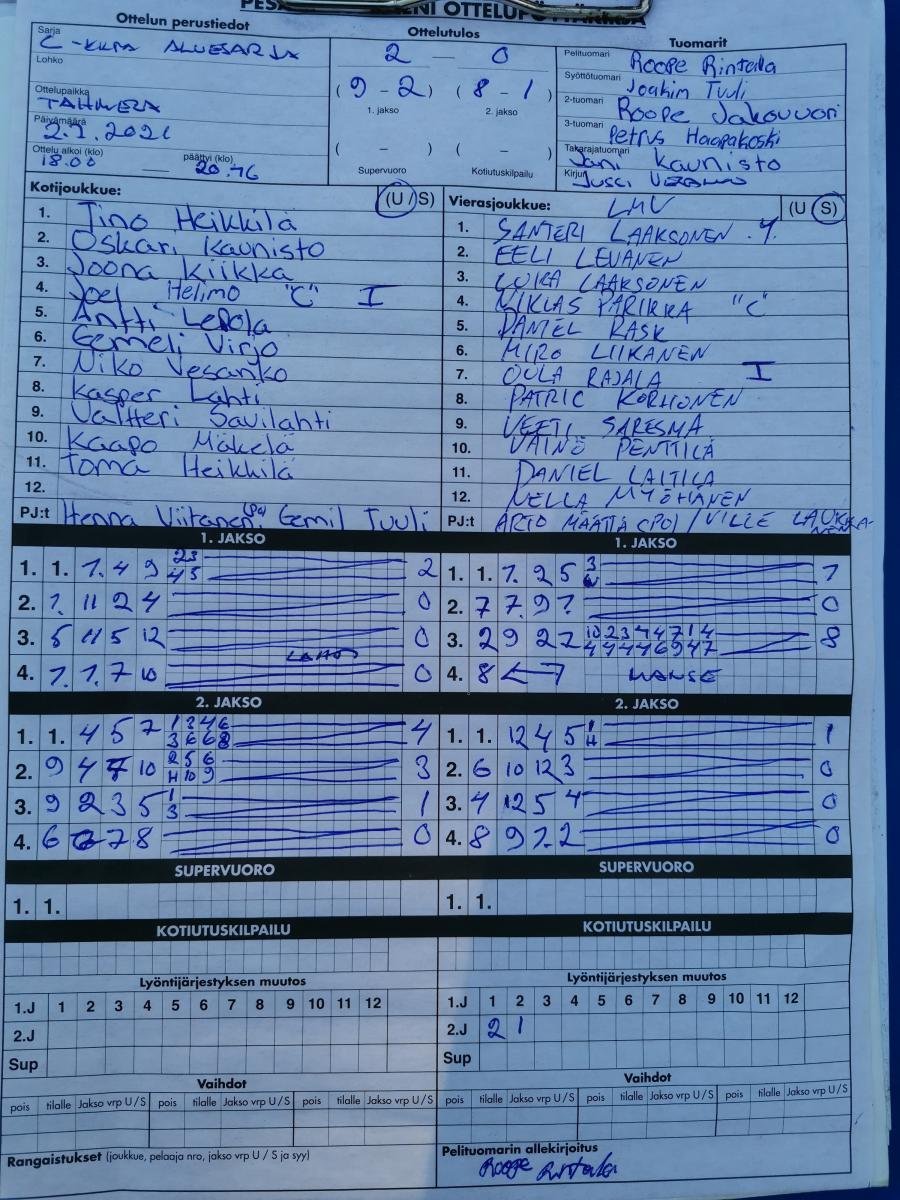 OTTELUPÖYTÄKIRJA
Ottelun perustiedot
Ottelutulos
Tuomarit
Sarja
ALUESARJA
Lohko
Ottelupaikka
TAHMELA
Päivämäärä
2.7.2021
Ottelu alkoi (klo) päättyi (klo)
18.00 — 20.16
2 — 0
( 9 - 2 ) ( 8 - 1 )
1. jakso 2. jakso
( - ) ( - )
Supervuoro Kotiutuskilpailu
Pelituomari Roope Rintala
Syöttötuomari Joakim Tuuli
2-tuomari Roope Jakouuori
3-tuomari Petrus Haapakoski
Takarajatuomari Jani Kaunisto
Kirjuri Jussi
Kotijoukkue: (U / S)
1. Tino Heikkilä
2. Oskari Kaunisto
3. Joona Kiikka
4. Joel Helimo "C" I
5. Antti Lepola
6. Eemeli Virjo
7. Niko Vesanko
8. Kasper Lahti
9. Valtteri Savilahti
10. Kaapo Mäkelä
11. Toma Heikkilä
12.
PJ:t Henna Viitanen (PJ), Eemil Tuuli
Vierasjoukkue: LMV (U / S)
1. SANTERI LAAKSONEN
2. EELI LEVANEN
3. LUKA LAAKSONEN
4. NIKLAS PARIKKA "C"
5. DANIEL RASK
6. MIRO LIIKANEN
7. OULA RAJALA I
8. PATRIC KORHONEN
9. VEETI SARESMA
10. VÄINÖ PENTTILÄ
11. DANIEL LAITILA
12. NELLA MYÖHÄNEN
PJ:t ARTO MÄÄTTÄ (PJ) / VILLE LAUKKA-
NEN
1. JAKSO
1. 1. 7. 4 9 2 3 2
4 5
2. 7. 11 2 4 0
3. 5 11 5 12 0
4. 7. 1. 7 10 0
1. JAKSO
1. 1. 7. 2 5 3
2. 7 7. 9 0
3. 2 9 2 8
4. 8 MANSE
2. JAKSO
1. 1. 4 5 7 1 3 4 6 4
3 6 6 8
2. 9 4 7 10 2 5 6 3
H 10 9
3. 9 2 3 5 1 1
3
4. 6 7 8 0
2. JAKSO
1. 1. 12 4 5 1 1
H
2. 6 10 12 3 0
3. 4 12 5 4 0
4. 8 9 2 0
SUPERVUORO
1. 1.
SUPERVUORO
1. 1.
KOTIUTUSKILPAILU
KOTIUTUSKILPAILU
Lyöntijärjestyksen muutos
1.J 1 2 3 4 5 6 7 8 9 10 11 12
2.J
Sup
Lyöntijärjestyksen muutos
1.J 1 2 3 4 5 6 7 8 9 10 11 12
2.J 2 1
Sup
Vaihdot
pois tilalle Jakso vrp U / S pois tilalle Jakso vrp U / S pois tilalle Jakso vrp U / S
Vaihdot
pois tilalle Jakso vrp U / S pois tilalle Jakso vrp U / S pois tilalle Jakso vrp U / S
Rangaistukset (joukkue, pelaaja nro, jakso vrp U / S ja syy)
Pelituomarin allekirjoitus
Roope Rintala